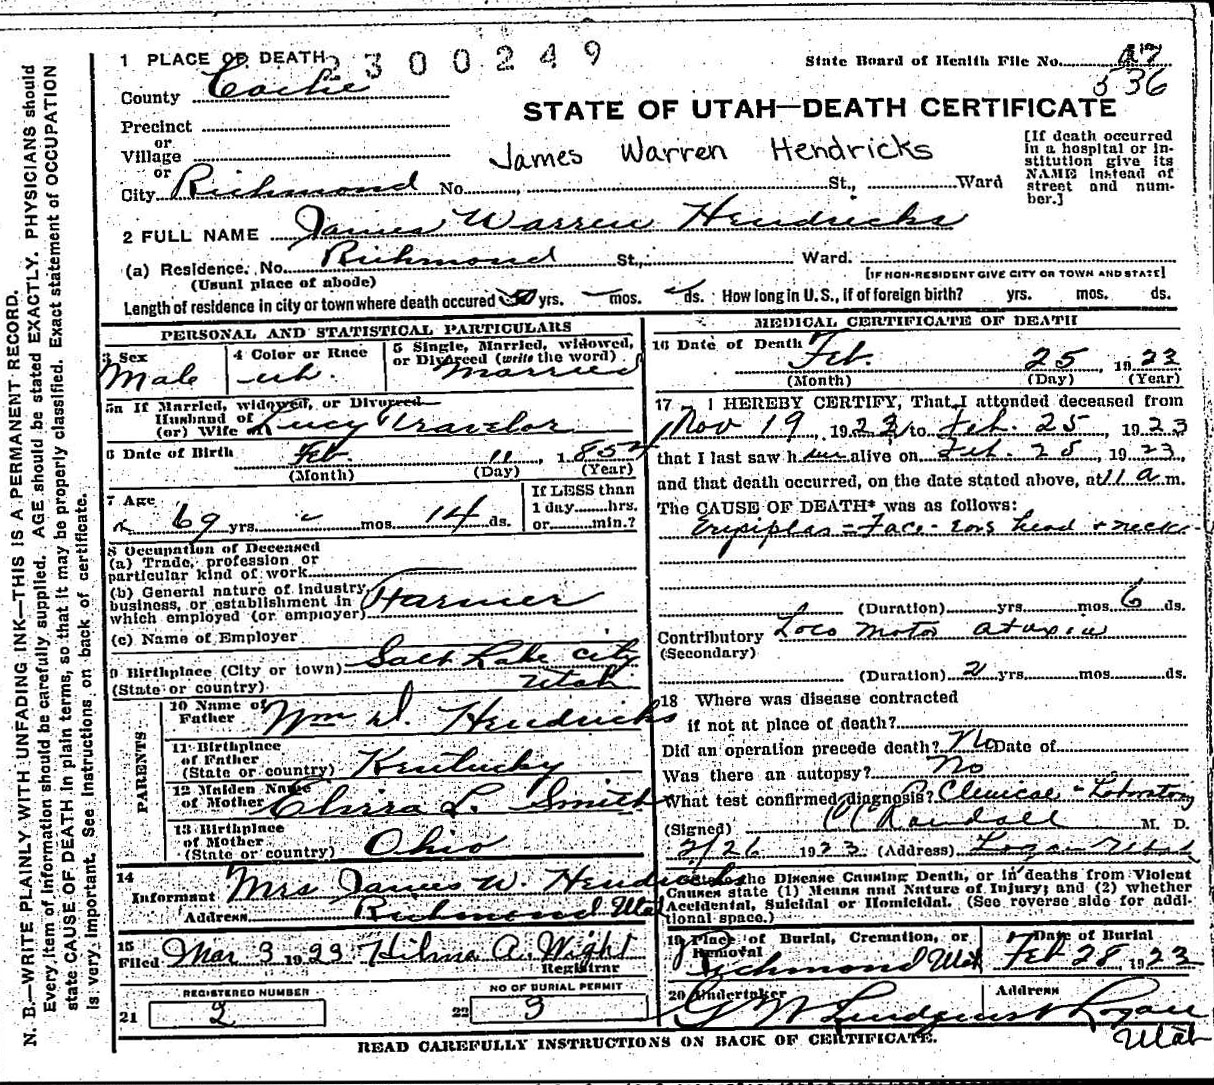 1 PLACE OF DEATH 2300249
State Board of Health File No. 17
536
County Cache
STATE OF UTAH—DEATH CERTIFICATE
Precinct
or
Village
James Warren Hendricks
[If death occurred in a hospital or institution give its NAME instead of street and number.]
or
City Richmond No. St., Ward
2 FULL NAME James Warren Hendricks
(a) Residence. No. Richmond St., Ward.
(Usual place of abode)
[IF NON-RESIDENT GIVE CITY OR TOWN AND STATE]
Length of residence in city or town where death occured 50 yrs. mos. ds. How long in U.S., if of foreign birth? yrs. mos. ds.
PERSONAL AND STATISTICAL PARTICULARS
3 Sex
Male
4 Color or Race
wh.
5 Single, Married, widowed, or Divorced (write the word)
Married
5a If Married, widowed, or Divorced
Husband of
(or) Wife of Lucy Travelor
6 Date of Birth Feb. 11, 1854
(Month) (Day) (Year)
7 Age
69 yrs. mos. 14 ds.
If LESS than
1 day hrs.
or min.?
8 Occupation of Deceased
(a) Trade, profession or
particular kind of work
(b) General nature of industry,
business, or establishment in
which employed (or employer) Farmer
(c) Name of Employer
9 Birthplace (City or town) Salt Lake City
(State or country) Utah
PARENTS
10 Name of
Father Wm D. Hendricks
11 Birthplace
of Father
(State or country) Kentucky
12 Maiden Name
of Mother L. Smith
13 Birthplace
of Mother
(State or country) Ohio
14
Informant Mrs James W. Hendricks
Address Richmond Utah
15
Filed Mar 3 1923 Hilma A. Wight
Registrar
REGISTERED NUMBER
21 2
NO OF BURIAL PERMIT
22 3
MEDICAL CERTIFICATE OF DEATH
16 Date of Death
Feb. 25, 1923
(Month) (Day) (Year)
17 I HEREBY CERTIFY, That I attended deceased from
Nov 19, 1923 to Feb. 25, 1923
that I last saw him alive on Feb. 25, 1923,
and that death occurred, on the date stated above, at 11 a m.
The CAUSE OF DEATH* was as follows:
Erysiplas = Face - ears head + neck -
(Duration) yrs. mos. 6 ds.
Contributory Loco motor ataxia
(Secondary)
(Duration) 2 yrs. mos. ds.
18 Where was disease contracted
if not at place of death?
Did an operation precede death? No Date of
Was there an autopsy? No
What test confirmed diagnosis? Clinical - Laboratory
(Signed) Randall M. D.
2/26 1923 (Address) Logan Utah
*State the Disease Causing Death, or in deaths from Violent
Causes state (1) Means and Nature of Injury; and (2) whether
Accidental, Suicidal or Homicidal. (See reverse side for additional space.)
19 Place of Burial, Cremation, or
Removal
Richmond Utah
Date of Burial
Feb 28, 1923
20 Undertaker
G W Lindquist
Address
Logan
Utah
READ CAREFULLY INSTRUCTIONS ON BACK OF CERTIFICATE.
N. B.—WRITE PLAINLY WITH UNFADING INK—THIS IS A PERMANENT RECORD.
Every item of information should be carefully supplied. AGE should be stated EXACTLY. PHYSICIANS should
state CAUSE OF DEATH in plain terms, so that it may be properly classified. Exact statement of OCCUPATION
is very important. See Instructions on back of certificate.